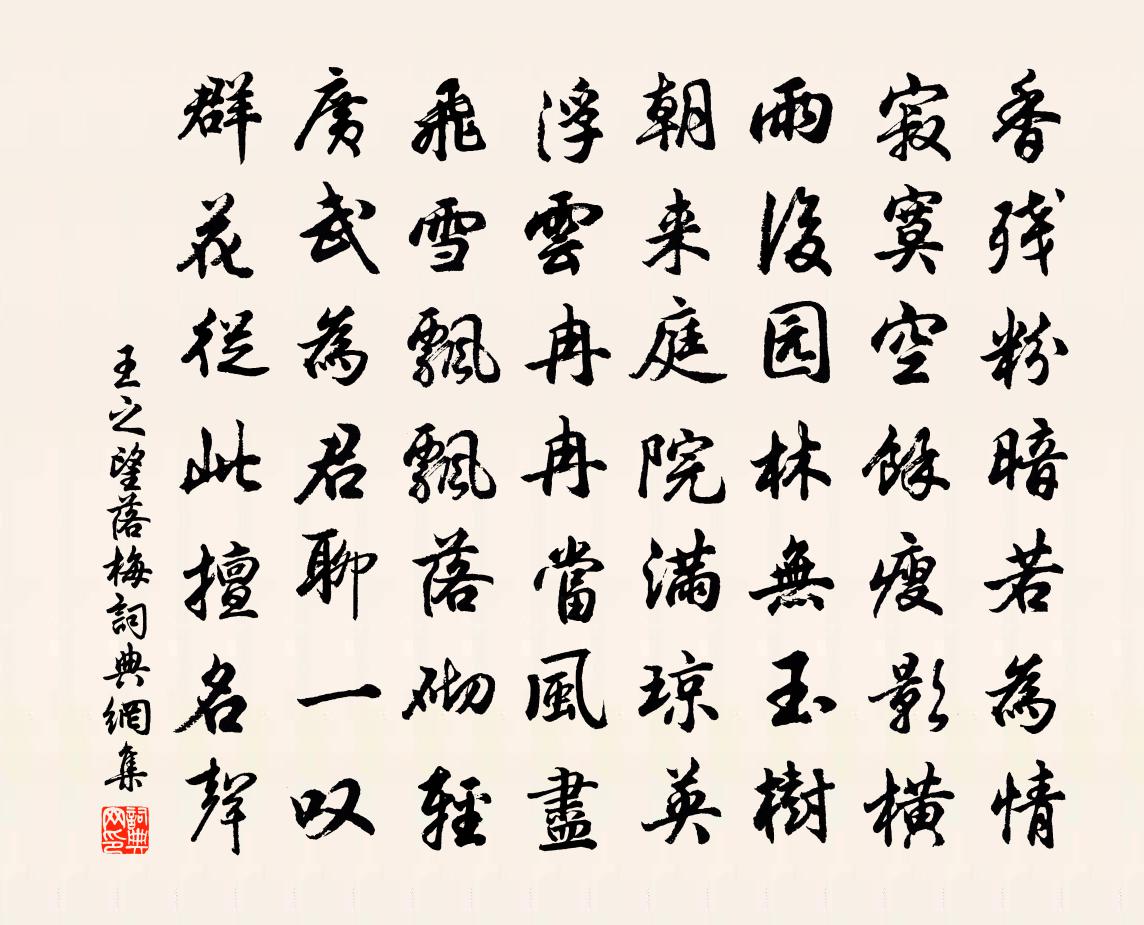 香残粉暗若為情
寂寞空餘瘦影橫
雨後园林無玉樹
朝来庭院滿琼英
浮雲冉冉當風盡
飛雪飄飄落砌輕
廣武為君聊一叹
群花從此擅名聲
王之望落梅詞典網集
詞典网印